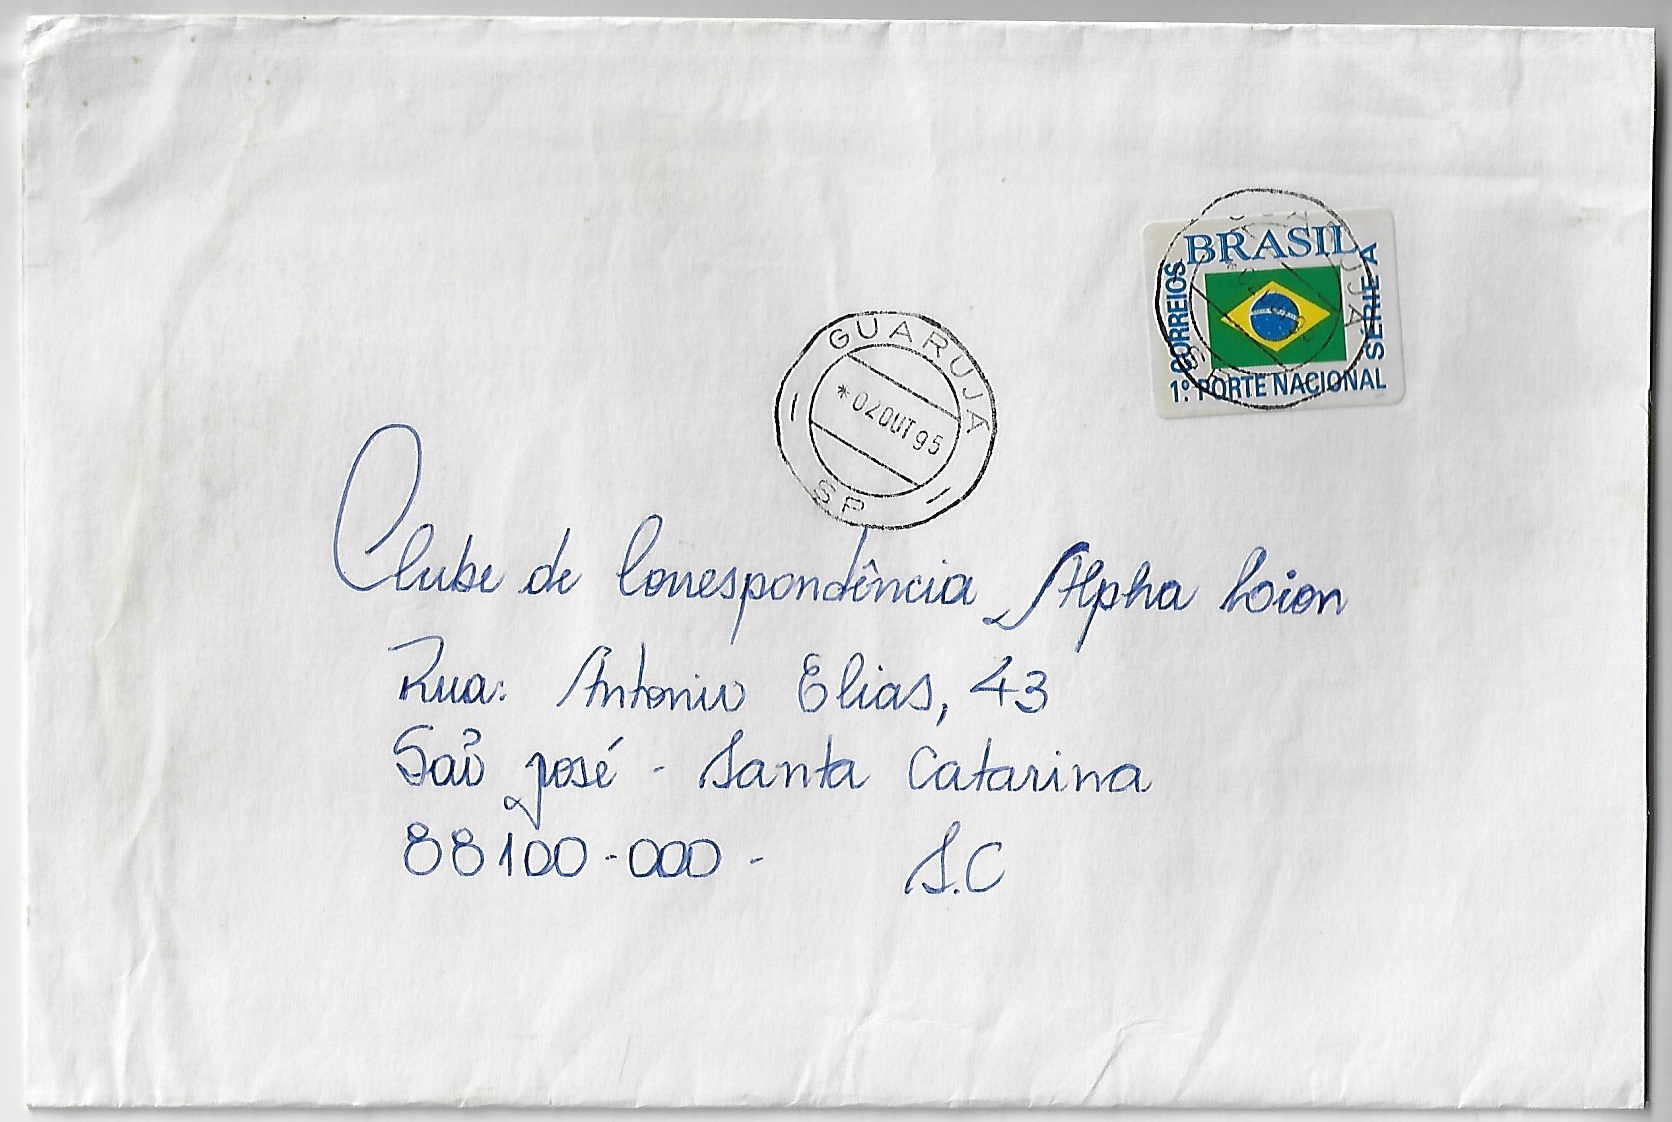 BRASIL
CORREIOS
SÉRIE A
1º PORTE NACIONAL
GUARUJA
*02OUT95
SP
Clube de Correspondência Alpha Loion
Rua: Antonio Elias, 43
São José - Santa Catarina
88100-000 - S.C